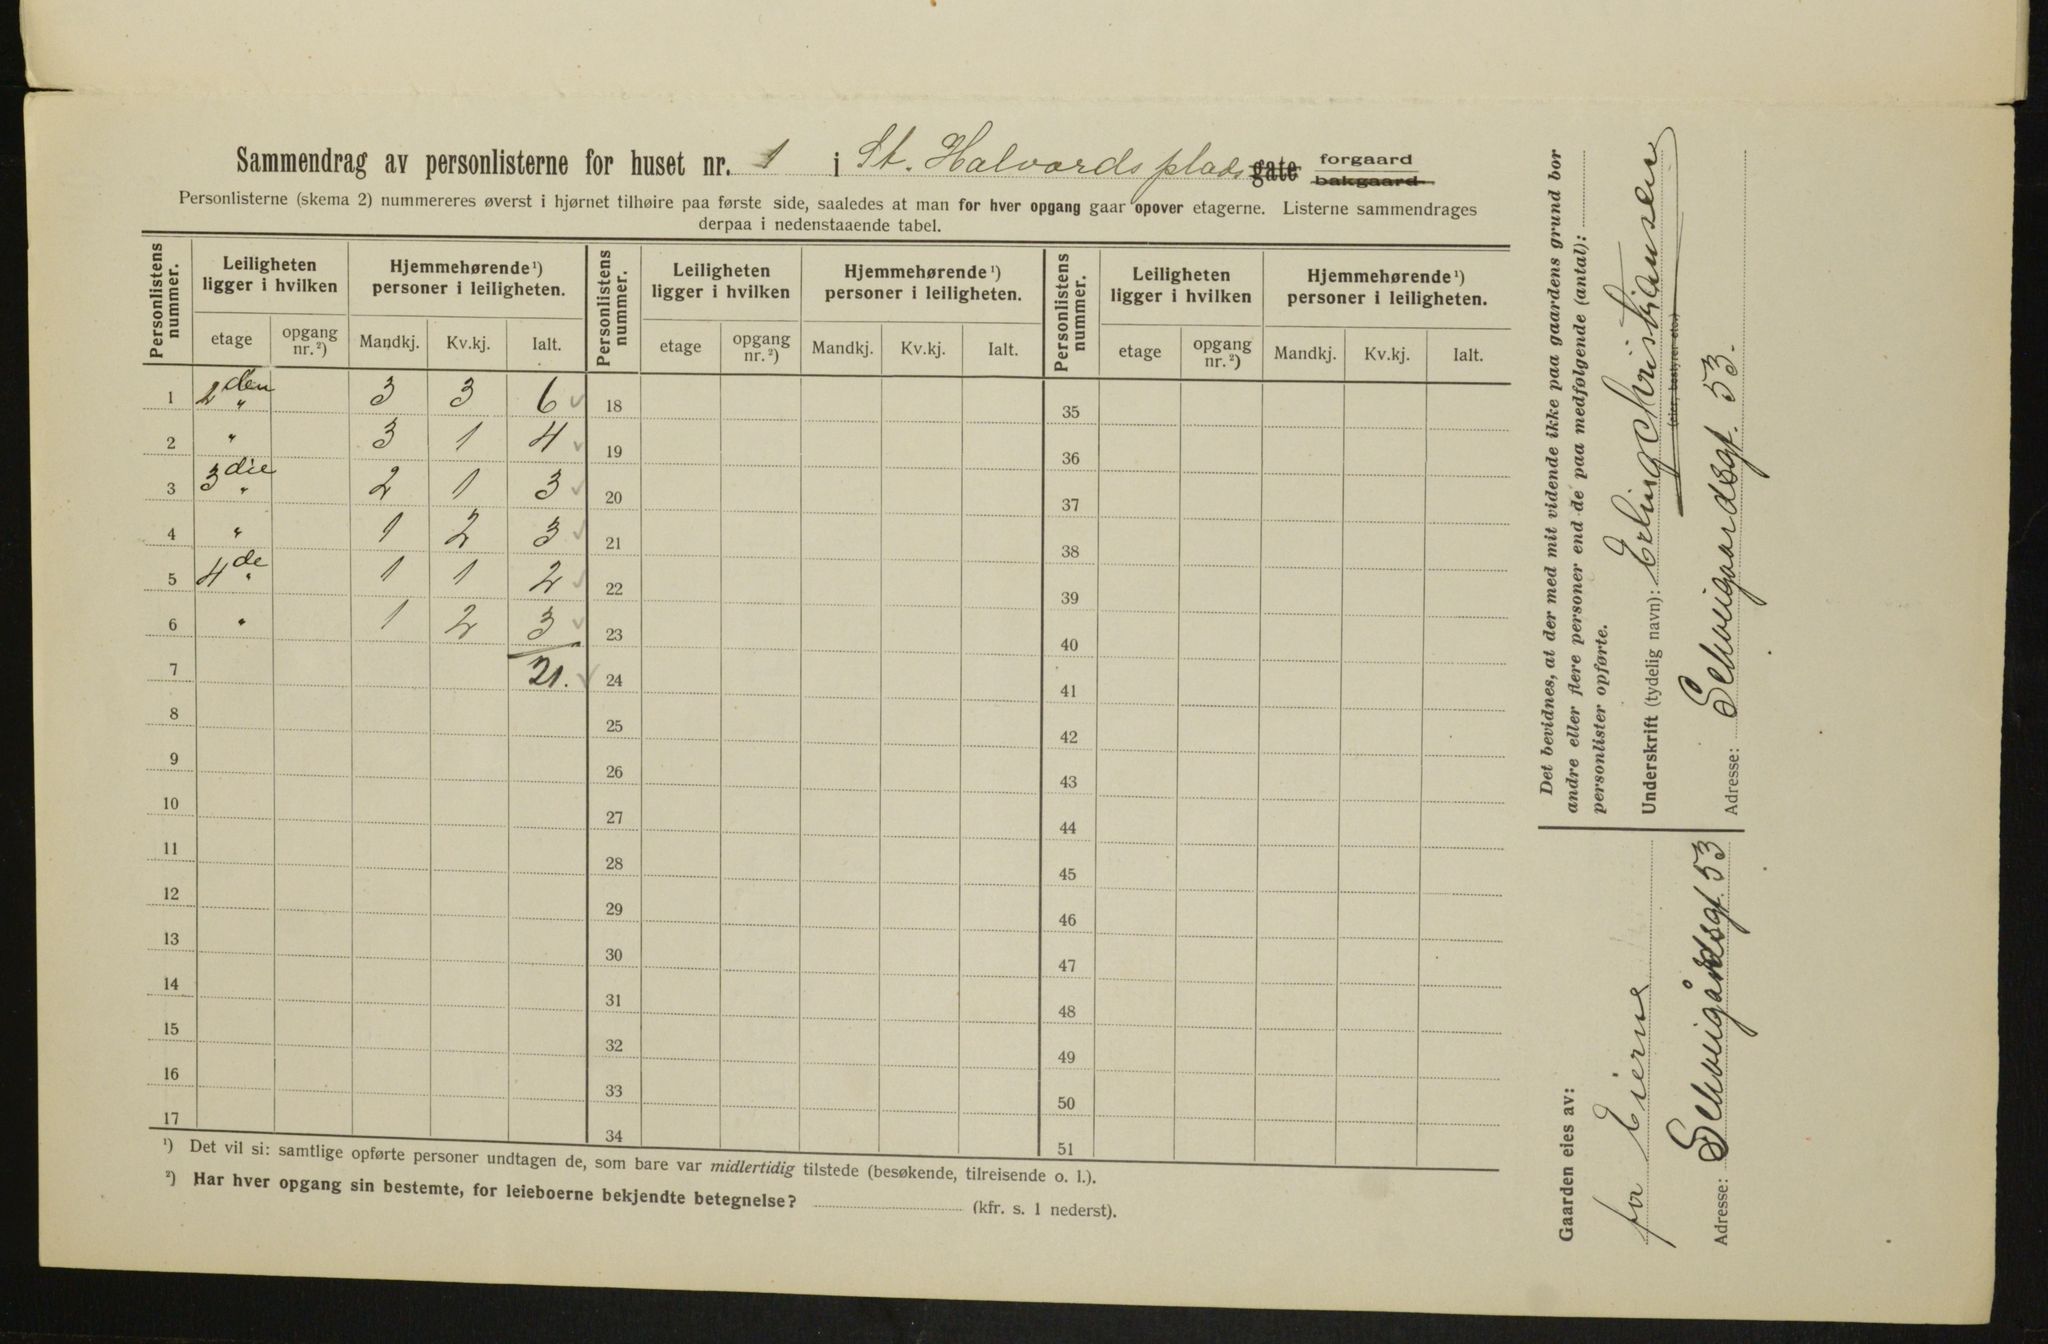 Sammendrag av personlisterne for huset nr. 1 i St. Halvards plads gate forgaard bakgaard
Personlisterne (skema 2) nummereres øverst i hjørnet tilhøire paa første side, saaledes at man for hver opgang gaar opover etagerne. Listerne sammendrages
derpaa i nedenstaaende tabel.
Personlistens nummer. | Leiligheten ligger i hvilken | Hjemmehørende ¹) personer i leiligheten. | Personlistens nummer. | Leiligheten ligger i hvilken | Hjemmehørende ¹) personer i leiligheten. | Personlistens nummer. | Leiligheten ligger i hvilken | Hjemmehørende ¹) personer i leiligheten.
etage | opgang nr. ²) | Mandkj. | Kv.kj. | Ialt. | etage | opgang nr. ²) | Mandkj. | Kv.kj. | Ialt. | etage | opgang nr. ²) | Mandkj. | Kv.kj. | Ialt.
1 2den " 3 3 6 18 35
2 " 3 1 4 19 36
3 3die " 2 1 3 20 37
4 " 1 2 3 21 38
5 4de " 1 1 2 22 39
6 " 1 2 3 23 40
7 21. 24 41
8 25 42
9 26 43
10 27 44
11 28 45
12 29 46
13 30 47
14 31 48
15 32 49
16 33 50
17 34 51
¹) Det vil si: samtlige opførte personer undtagen de, som bare var midlertidig tilstede (besøkende, tilreisende o. l.).
²) Har hver opgang sin bestemte, for leieboerne bekjendte betegnelse? (kfr. s. 1 nederst).
Det bevidnes, at der med mit vidende ikke paa gaardens grund bor
andre eller flere personer end de paa medfølgende (antal):
personlister opførte.
Underskrift (tydelig navn): Erling Christiansen
(eier, bestyrer etc.)
Adresse: Schweigaardsgt. 53.
Gaarden eies av:
for Eierne
Adresse: Schweigårdsgt. 53